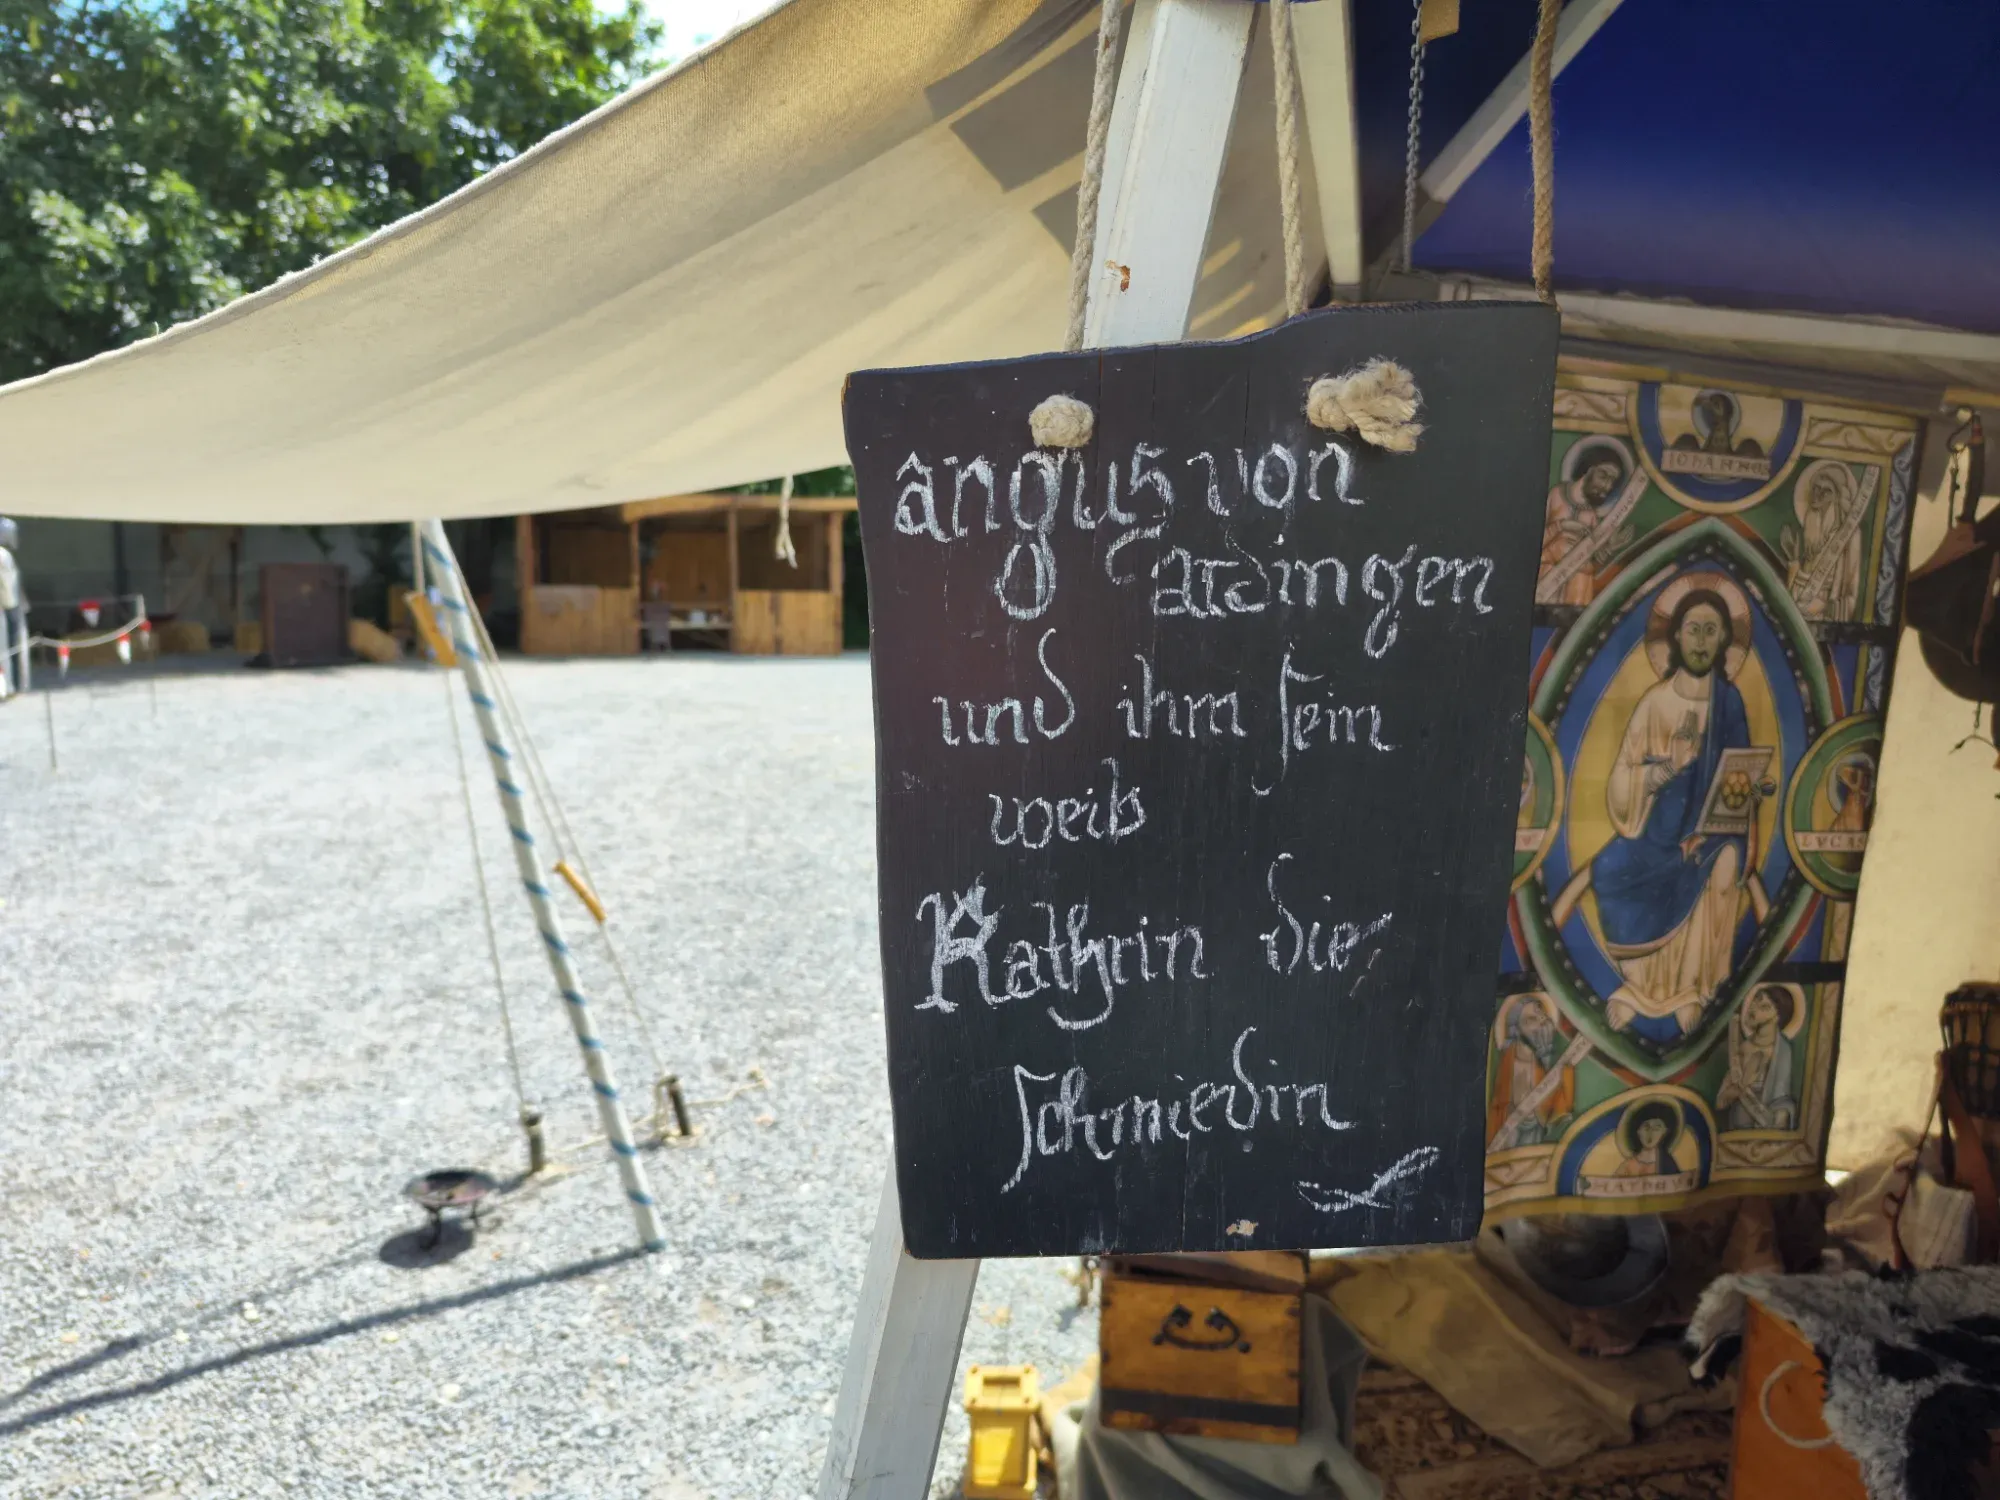 angus von
Cardingen
und ihm ſein
weib
Kathrin die
ſchmiedin
IOHANNES
LVCAS